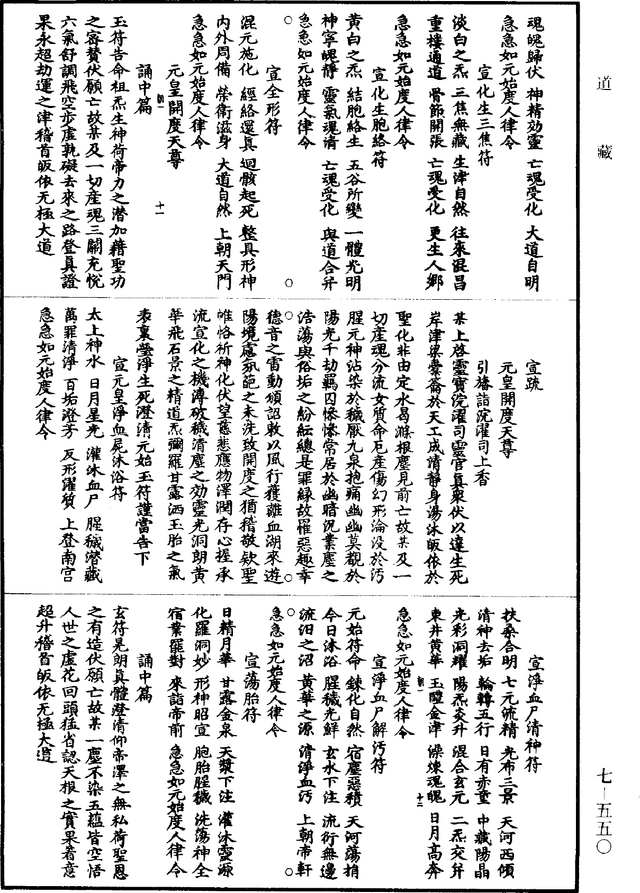 道藏
魂魄歸伏　神精効靈　亡魂受化　大道自明
急急如元始度人律令
宣化生三焦符
淡白之炁　三焦無藏　生津自然　往來混昌
重樓通道　骨節開張　亡魂受化　更生人鄉
急急如元始度人律令
宣化生胞絡符
黃白之炁　結胞絡生　五谷所變　一體光明
神寧魄靜　靈氣魂清　亡魂受化　與道合并
急急如元始度人律令
宣全形符
混元施化　經絡還真　迴骸起死　整具形神
內外周備　榮衛滋身　大道自然　上朝天門
急急如元始度人律令
元皇開度天尊
十一
誦中篇
玉符告命祖炁生神荷帝力之潛加藉聖功
之密贊伏願亡故某及一切產魂三關充悅
六氣舒調飛空步虛孰礙去來之路登真證
果永超劫運之津稽首皈依无極大道
宣疏
元皇開度天尊
引旛詣浣濯司上香
某上啓靈寶浣濯司靈官真衆伏以違生死
岸津梁橐籥於天工成清靜身湯沐皈依於
聖化非由定水曷滌根塵見前亡故某及一
切產魂分流女質命厄產傷幻形淪沒於污
腥元神沾染於穢厭九泉抱痛幽幽莫覩於
陽光千劫羈囚慘慘常居於幽暗沉業塵之
浩蕩與俗垢之紛紜總是罪緣故罹惡趣幸
德音之雷動頒詔敕以風行獲離血湖來遊
陽境慮氛葩之未洗致開度之猶稽敬欽聖
帷恪祈神化伏望慈悲應物澤潤存心握承
流宣化之機溥破穢清塵之効靈光洞朗黃
華飛石景之精道炁彌羅甘露洒玉胎之氣
表裏瑩淨生死澄清元始玉符謹當告下
宣元皇淨血屍沐浴符
太上神水　日月星光　灌沐血尸　腥穢潛藏
萬罪清淨　百垢澄芳　反形濯質　上登南宮
急急如元始度人律令
宣淨血尸清神符
扶桑合明　七元流精　光布三景　天河西傾
清神去垢　輪轉五行　日有赤童　中藏陽晶
光彩洞耀　陽炁炎升　混合玄元　二炁交并
東井黃華　玉醴金津　澡煉魂魄　日月高奔
急急如元始度人律令
十二
宣淨血尸解污符
元始符命　鍊化自然　宿塵惡積　天河蕩捐
今日沐浴　腥穢光鮮　玄水下注　流衍無邊
流汨之沼　黃華之源　清淨血污　上朝帝軒
急急如元始度人律令
宣蕩胎符
日精月華　甘露金泉　天漿下注　灌沐靈源
化羅洞妙　形神昭宣　胞胎腥穢　洗蕩神全
宿業羅對　來詣帝前　急急如元始度人律令
誦中篇
玄符晃朗真體澄清仰帝澤之無私荷聖恩
之有造伏願亡故某一塵不染五蘊皆空悟
人世之虛花回頭猛省認天根之實果者意
超升稽首皈依无極大道
七－五五〇